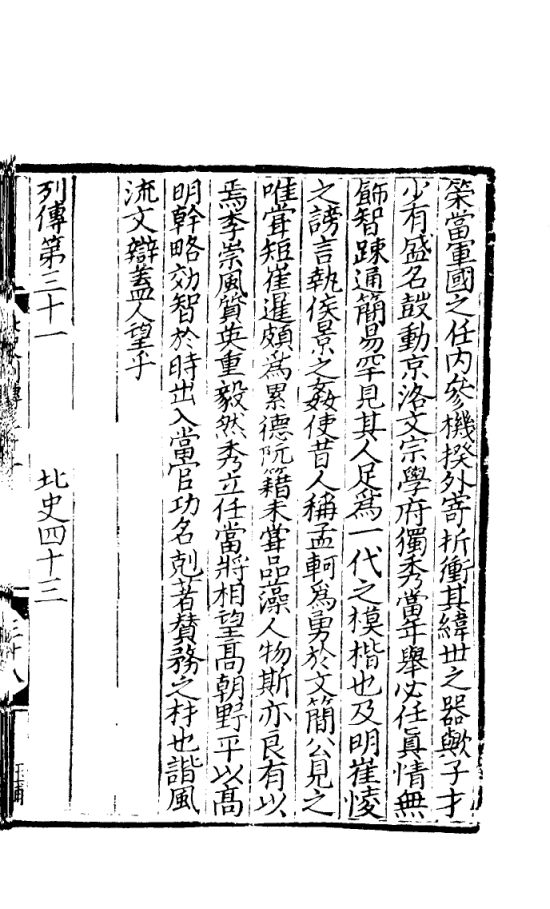 策當軍國之任内參機揆外寄折衝其緯世之器歟子才
少有盛名鼓動京洛文宗學府獨秀當年舉必任真情無
飾智踈通簡易罕見其人足為一代之模楷也及明崔㥄
之謗言執侯景之姦使昔人稱孟軻為勇於文簡公見之
唯嘗短崔暹頗為累德阮籍未嘗品藻人物斯亦良有以
焉季崇風質英重毅然秀立任當將相望髙朝野平以髙
明幹略効智於時出入當官功名剋著贊務之材也諧風
流文辯蓋人望乎
列傳第三十一 北史四十三